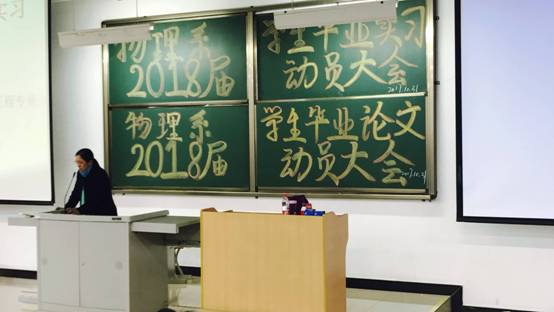 物理系
2018届
学生毕业实习
动员大会
2017.10.31
物理系
2018届
学生毕业论文
动员大会
2017.10.31